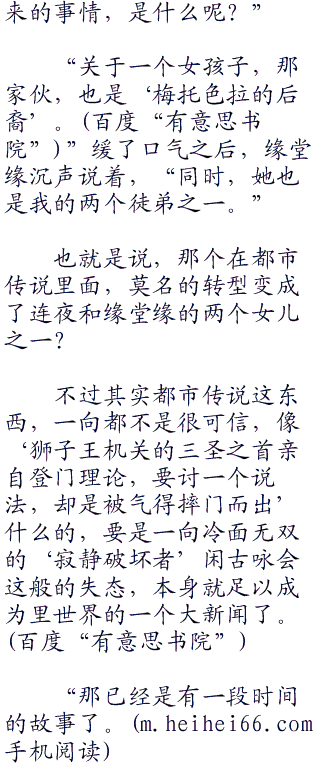 来的事情，是什么呢？”
“关于一个女孩子，那
家伙，也是‘梅托色拉的后
裔’。(百度“有意思书
院”)”缓了口气之后，缘堂
缘沉声说着，“同时，她也
是我的两个徒弟之一。”
也就是说，那个在都市
传说里面，莫名的转型变成
了连夜和缘堂缘的两个女儿
之一？
不过其实都市传说这东
西，一向都不是很可信，像
‘狮子王机关的三圣之首亲
自登门理论，要讨一个说
法，却是被气得摔门而出’
什么的，要是一向冷面无双
的‘寂静破坏者’闲古咏会
这般的失态，本身就足以成
为里世界的一个大新闻了。
(百度“有意思书院”)
“那已经是有一段时间
的故事了。(m.heihei66.com
手机阅读)